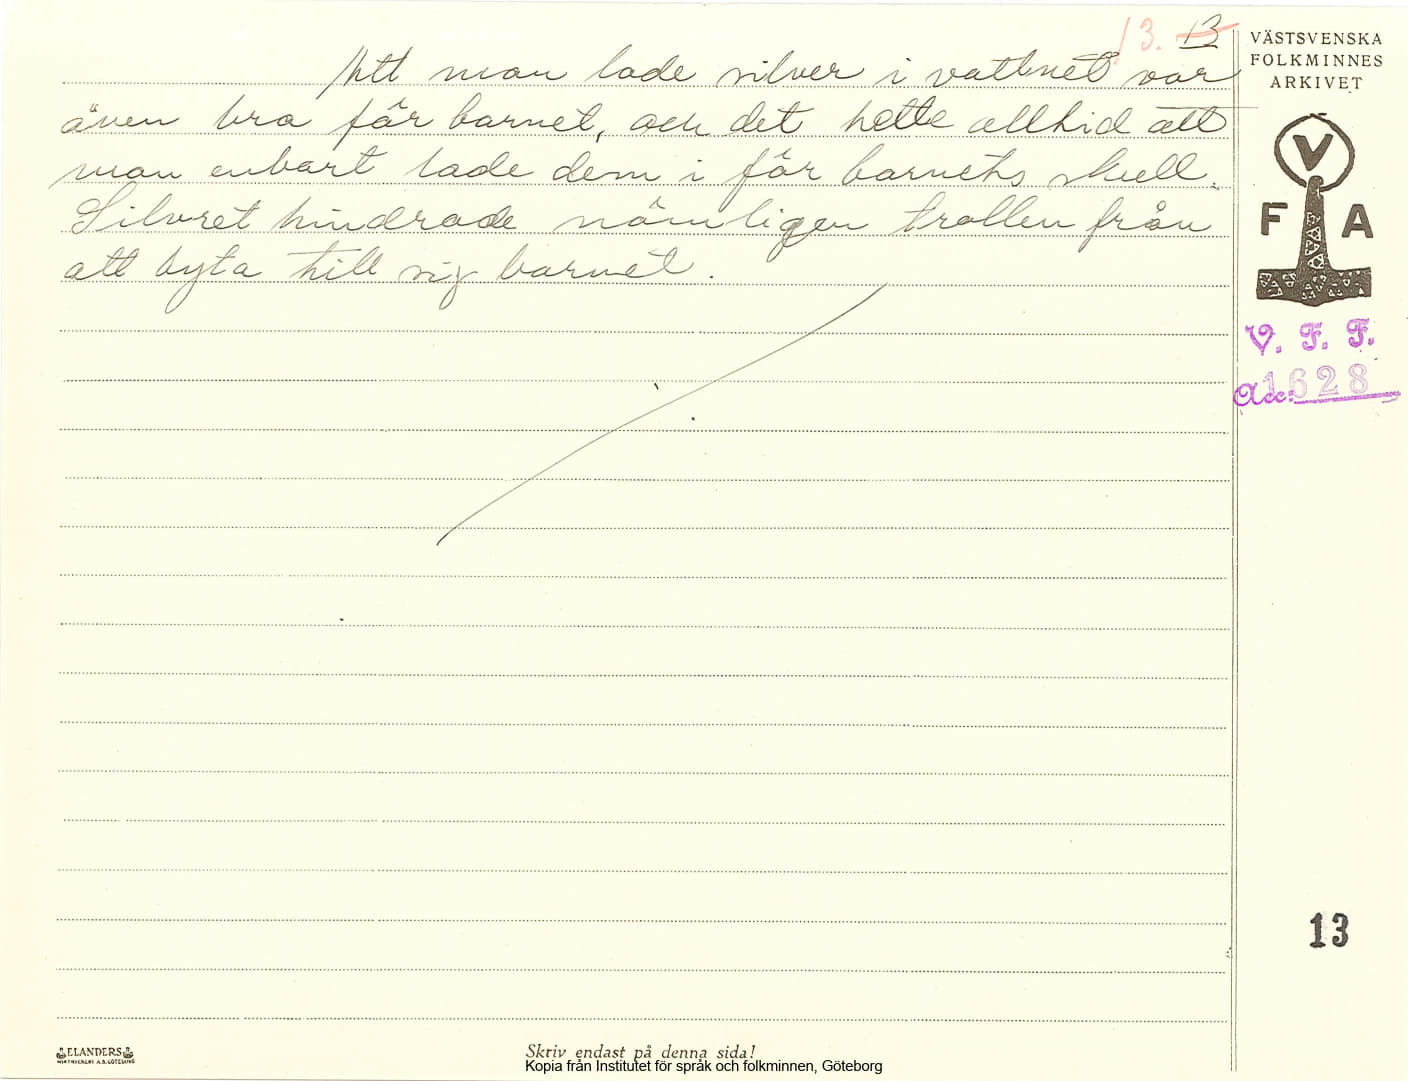 13. 13
Att man lade silver i vattnet var
även bra för barnet, och det hette alltid att
man enbart lade dem i för barnets skull.
Silvret hindrade nämligen trollen från
att byta till sig barnet.
VÄSTSVENSKA
FOLKMINNES
ARKIVET
V
F A
V. F. F.
Acc: 1628
13
ELANDERS
Skriv endast på denna sida!
Kopia från Institutet för språk och folkminnen, Göteborg